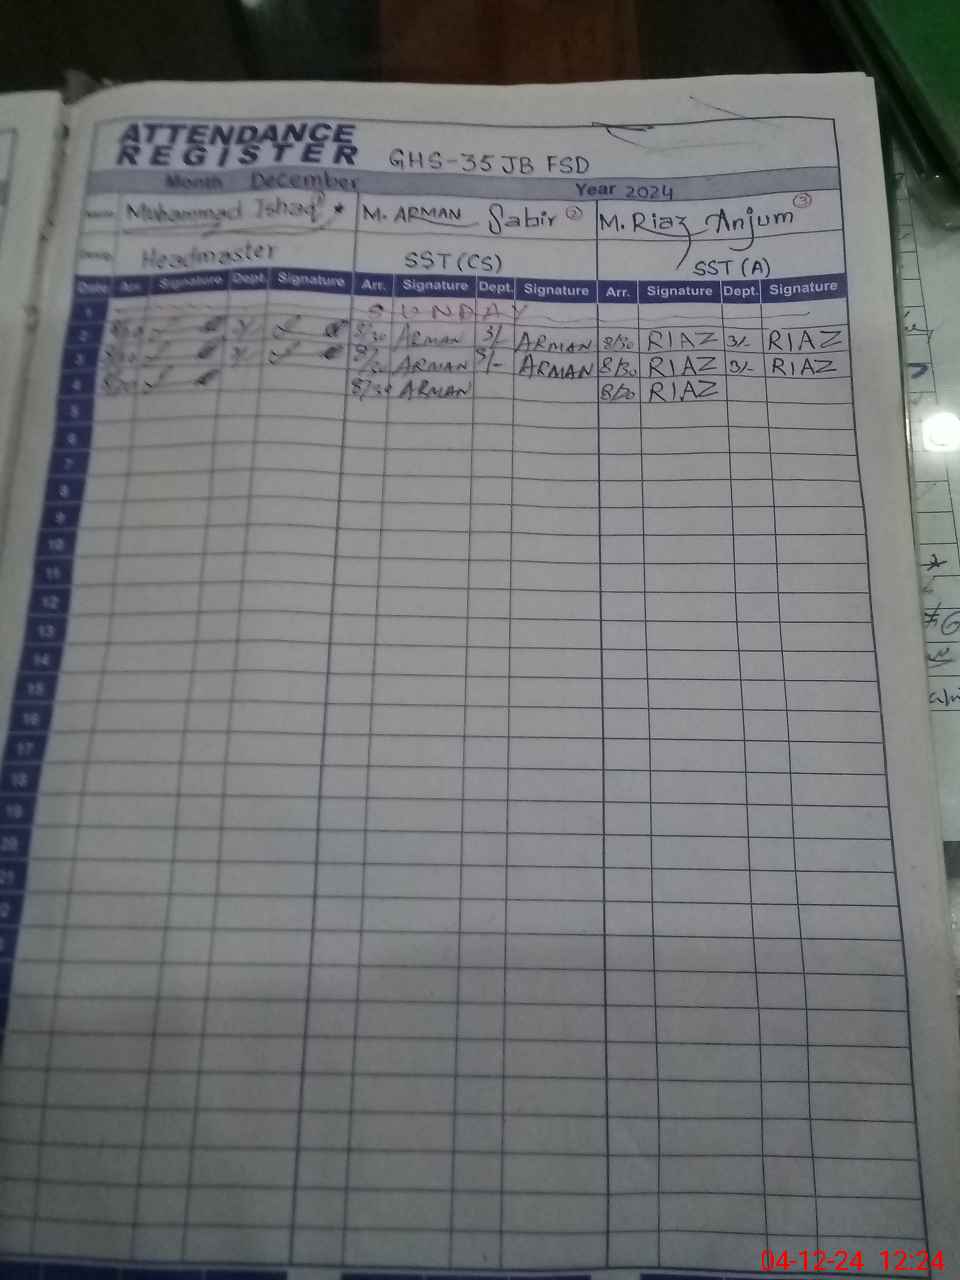 ATTENDANCE
REGISTER GHS-35 JB FSD
Month December Year 2024
Name Muhammad Ishaq * M. ARMAN Sabir ② M. Riaz Anjum ③
Headmaster SST (CS) SST (A)
Date Arr. Signature Dept. Signature Arr. Signature Dept. Signature Arr. Signature Dept. Signature
1 SUNDAY
2 8/30 3/- 8/30 ARMAN 3/- ARMAN 8/30 RIAZ 3/- RIAZ
3 8/30 3/- 8/30 ARMAN 3/- ARMAN 8/30 RIAZ 3/- RIAZ
4 8/30 8/30 ARMAN 8/30 RIAZ
5
6
7
8
9
10
11
12
13
14
15
16
17
18
19
20
21
04-12-24 12:24